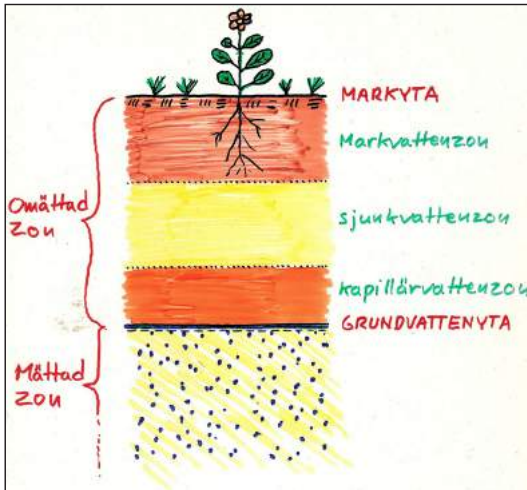 MARKYTA
Markvattenzon
Omättad
zon
sjunkvattenzon
kapillärvattenzon
GRUNDVATTENYTA
Mättad
zon